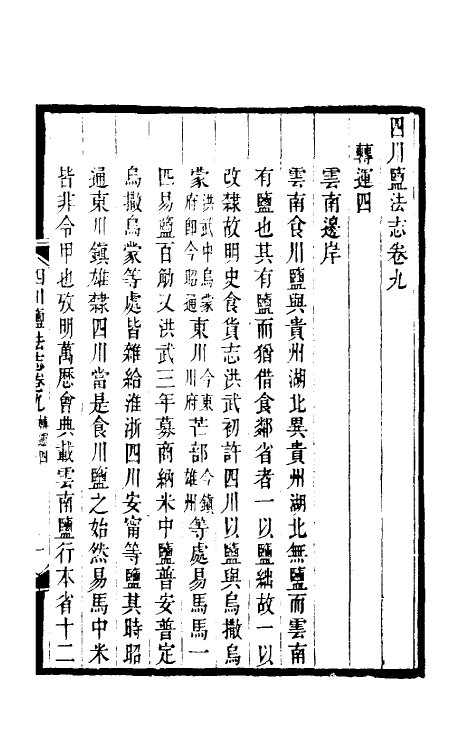 四川鹽法志卷九
轉運四
雲南邊岸
雲南食川鹽與貴州湖北異貴州湖北無鹽而雲南
有鹽也其有鹽而猶借食鄰省者一以鹽絀故一以
改隸故明史食貨志洪武初許四川以鹽與烏撒烏
蒙洪武中烏蒙府卽今昭通東川今東川府芒部今鎮雄州等處易馬馬一
匹易鹽百觔又洪武三年募商納米中鹽普安普定
烏撒烏蒙等處皆雜給淮浙四川安甯等鹽其時昭
通東川鎮雄隸四川當是食川鹽之始然易馬中米
皆非令甲也攷明萬歷會典載雲南鹽行本省十二
四川鹽法志卷九 轉運四 一